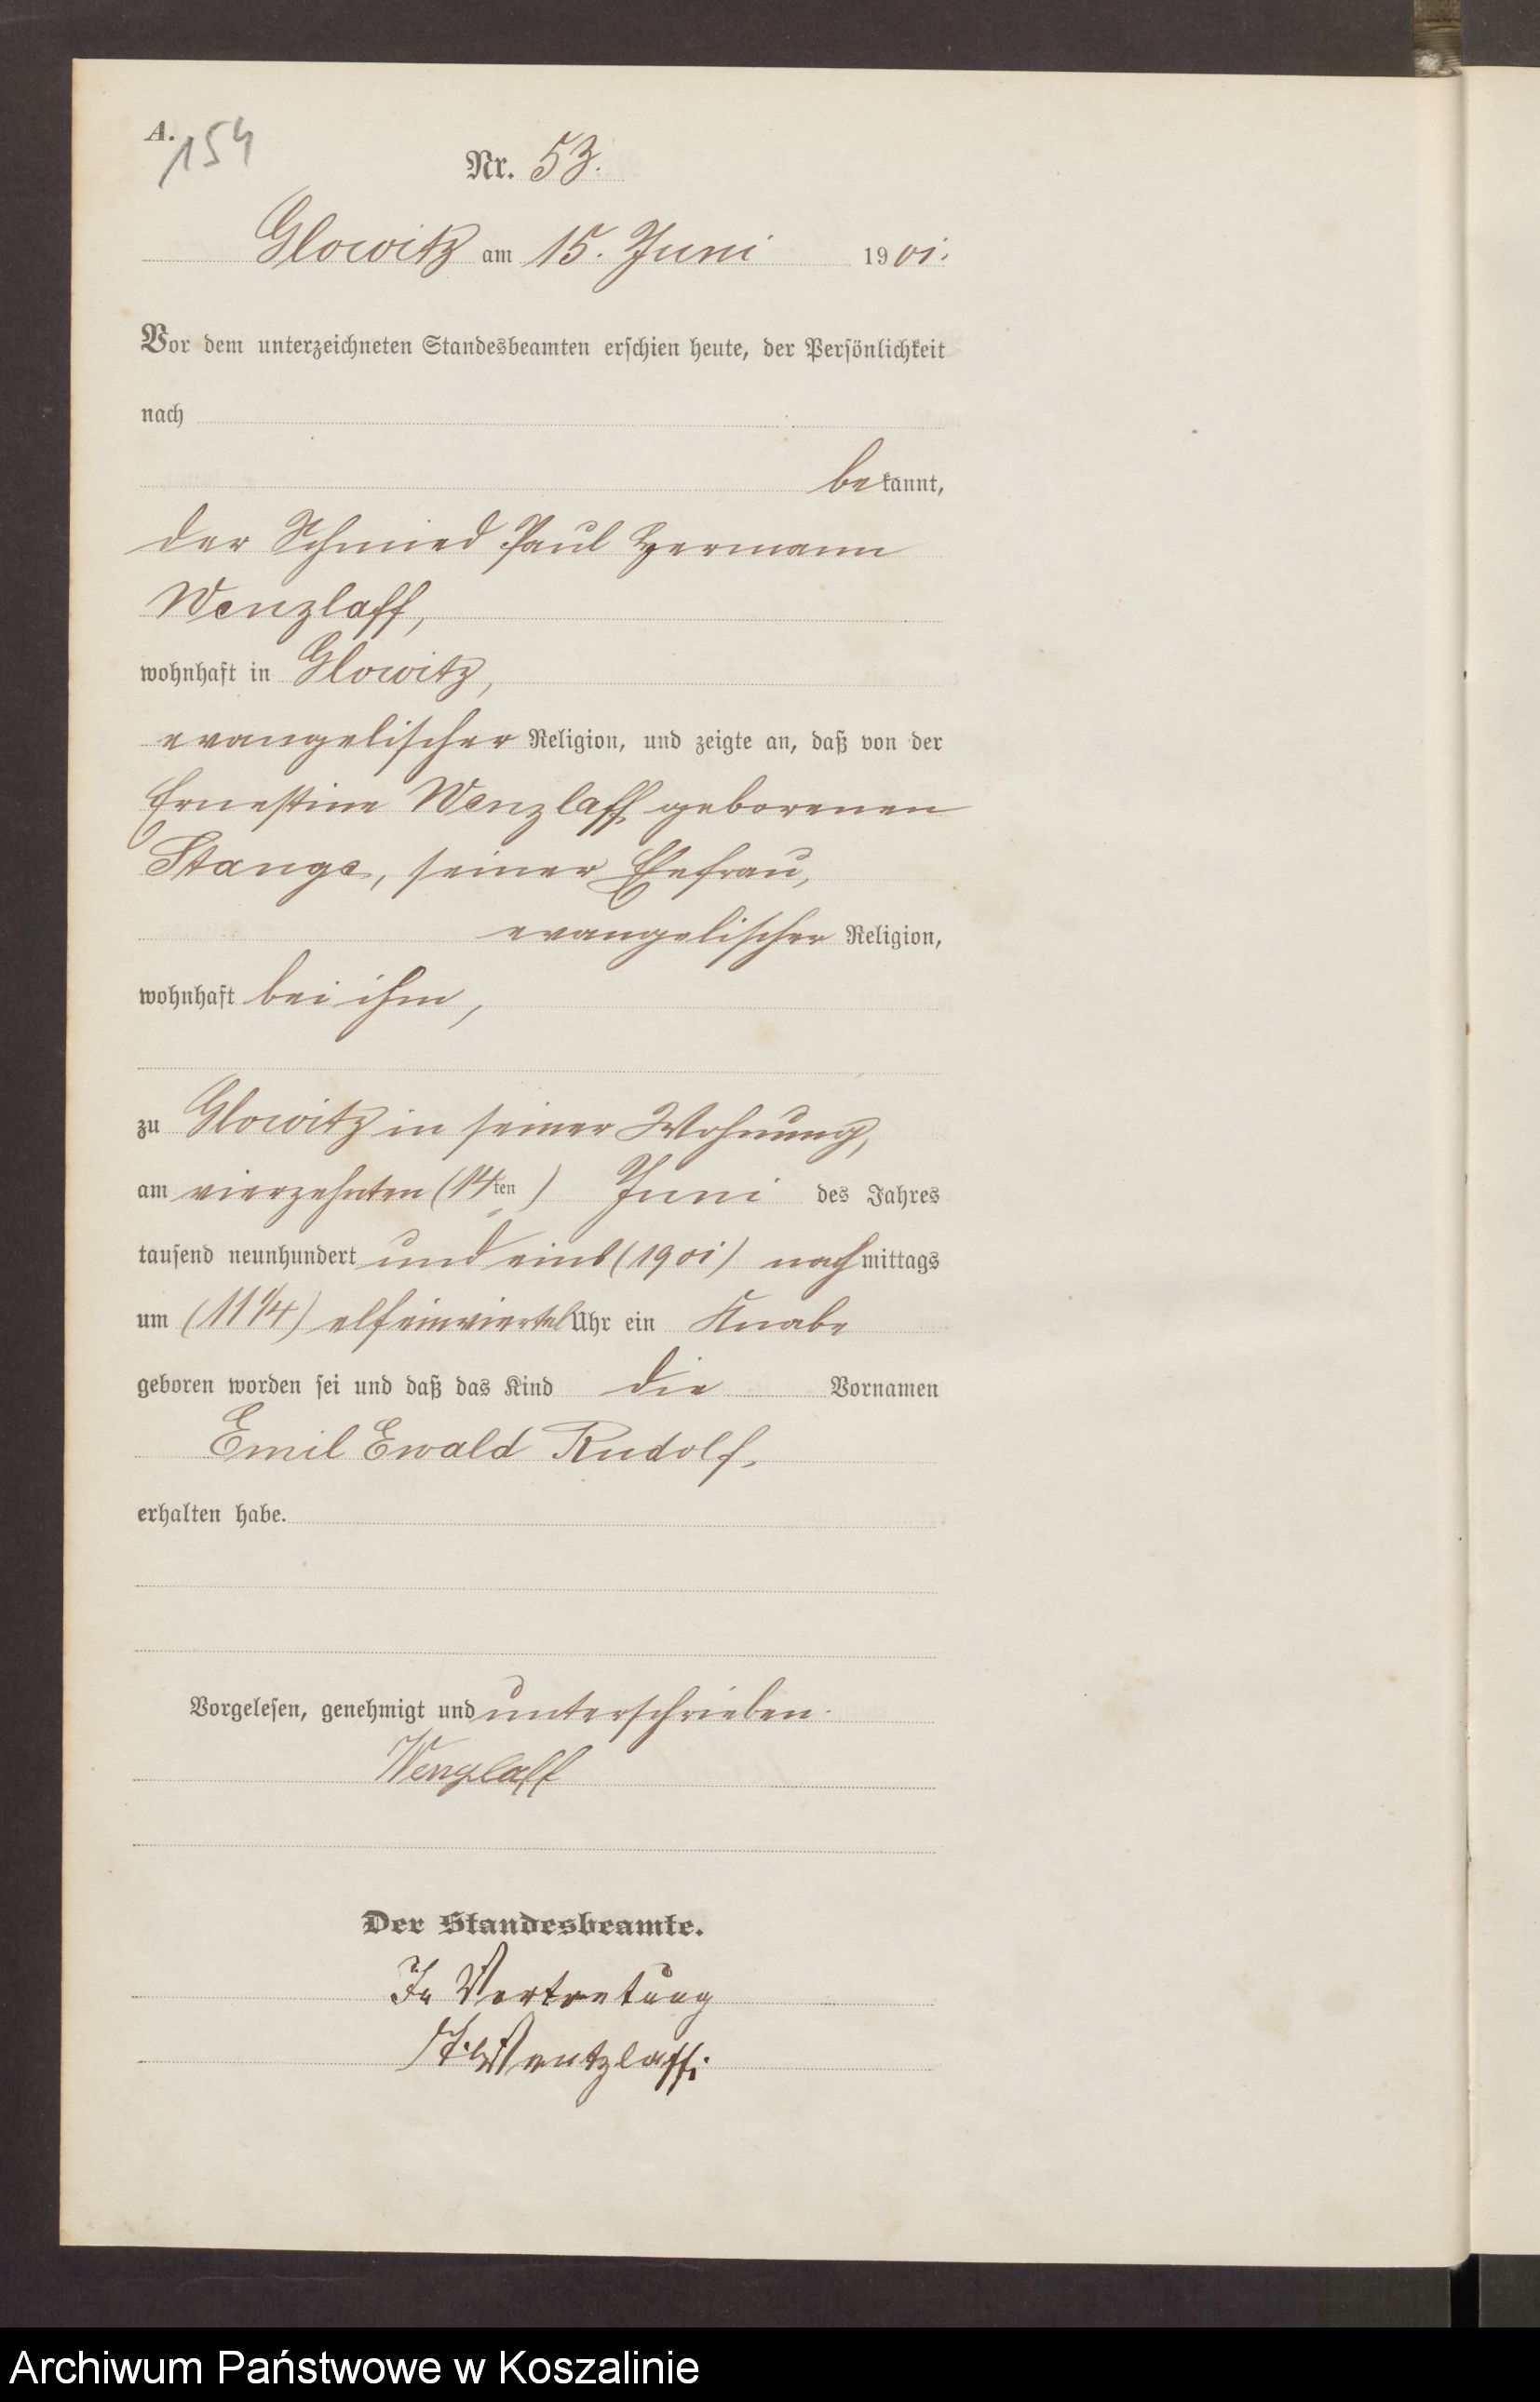 A.
154
Nr. 53.
Glowitz am 15. Juni 1901.
Vor dem unterzeichneten Standesbeamten erschien heute, der Persönlichkeit
nach
bekannt,
der Schmied Paul Hermann
Wenzlaff,
wohnhaft in Glowitz,
evangelischer Religion, und zeigte an, daß von der
Ernestine Wenzlaff geborenen
Stange, seiner Ehefrau,
evangelischer Religion,
wohnhaft bei ihm,
zu Glowitz in seiner Wohnung,
am vierzehnten (14ten) Juni des Jahres
tausend neunhundert und eins (1901) nachmittags
um (11 1/4) elfeinviertel Uhr ein Knabe
geboren worden sei und daß das Kind die Vornamen
Emil Ewald Rudolf,
erhalten habe.
Vorgelesen, genehmigt und unterschrieben.
Wenzlaff
Der Standesbeamte.
In Vertretung
Wentzlaff.
Archiwum Państwowe w Koszalinie